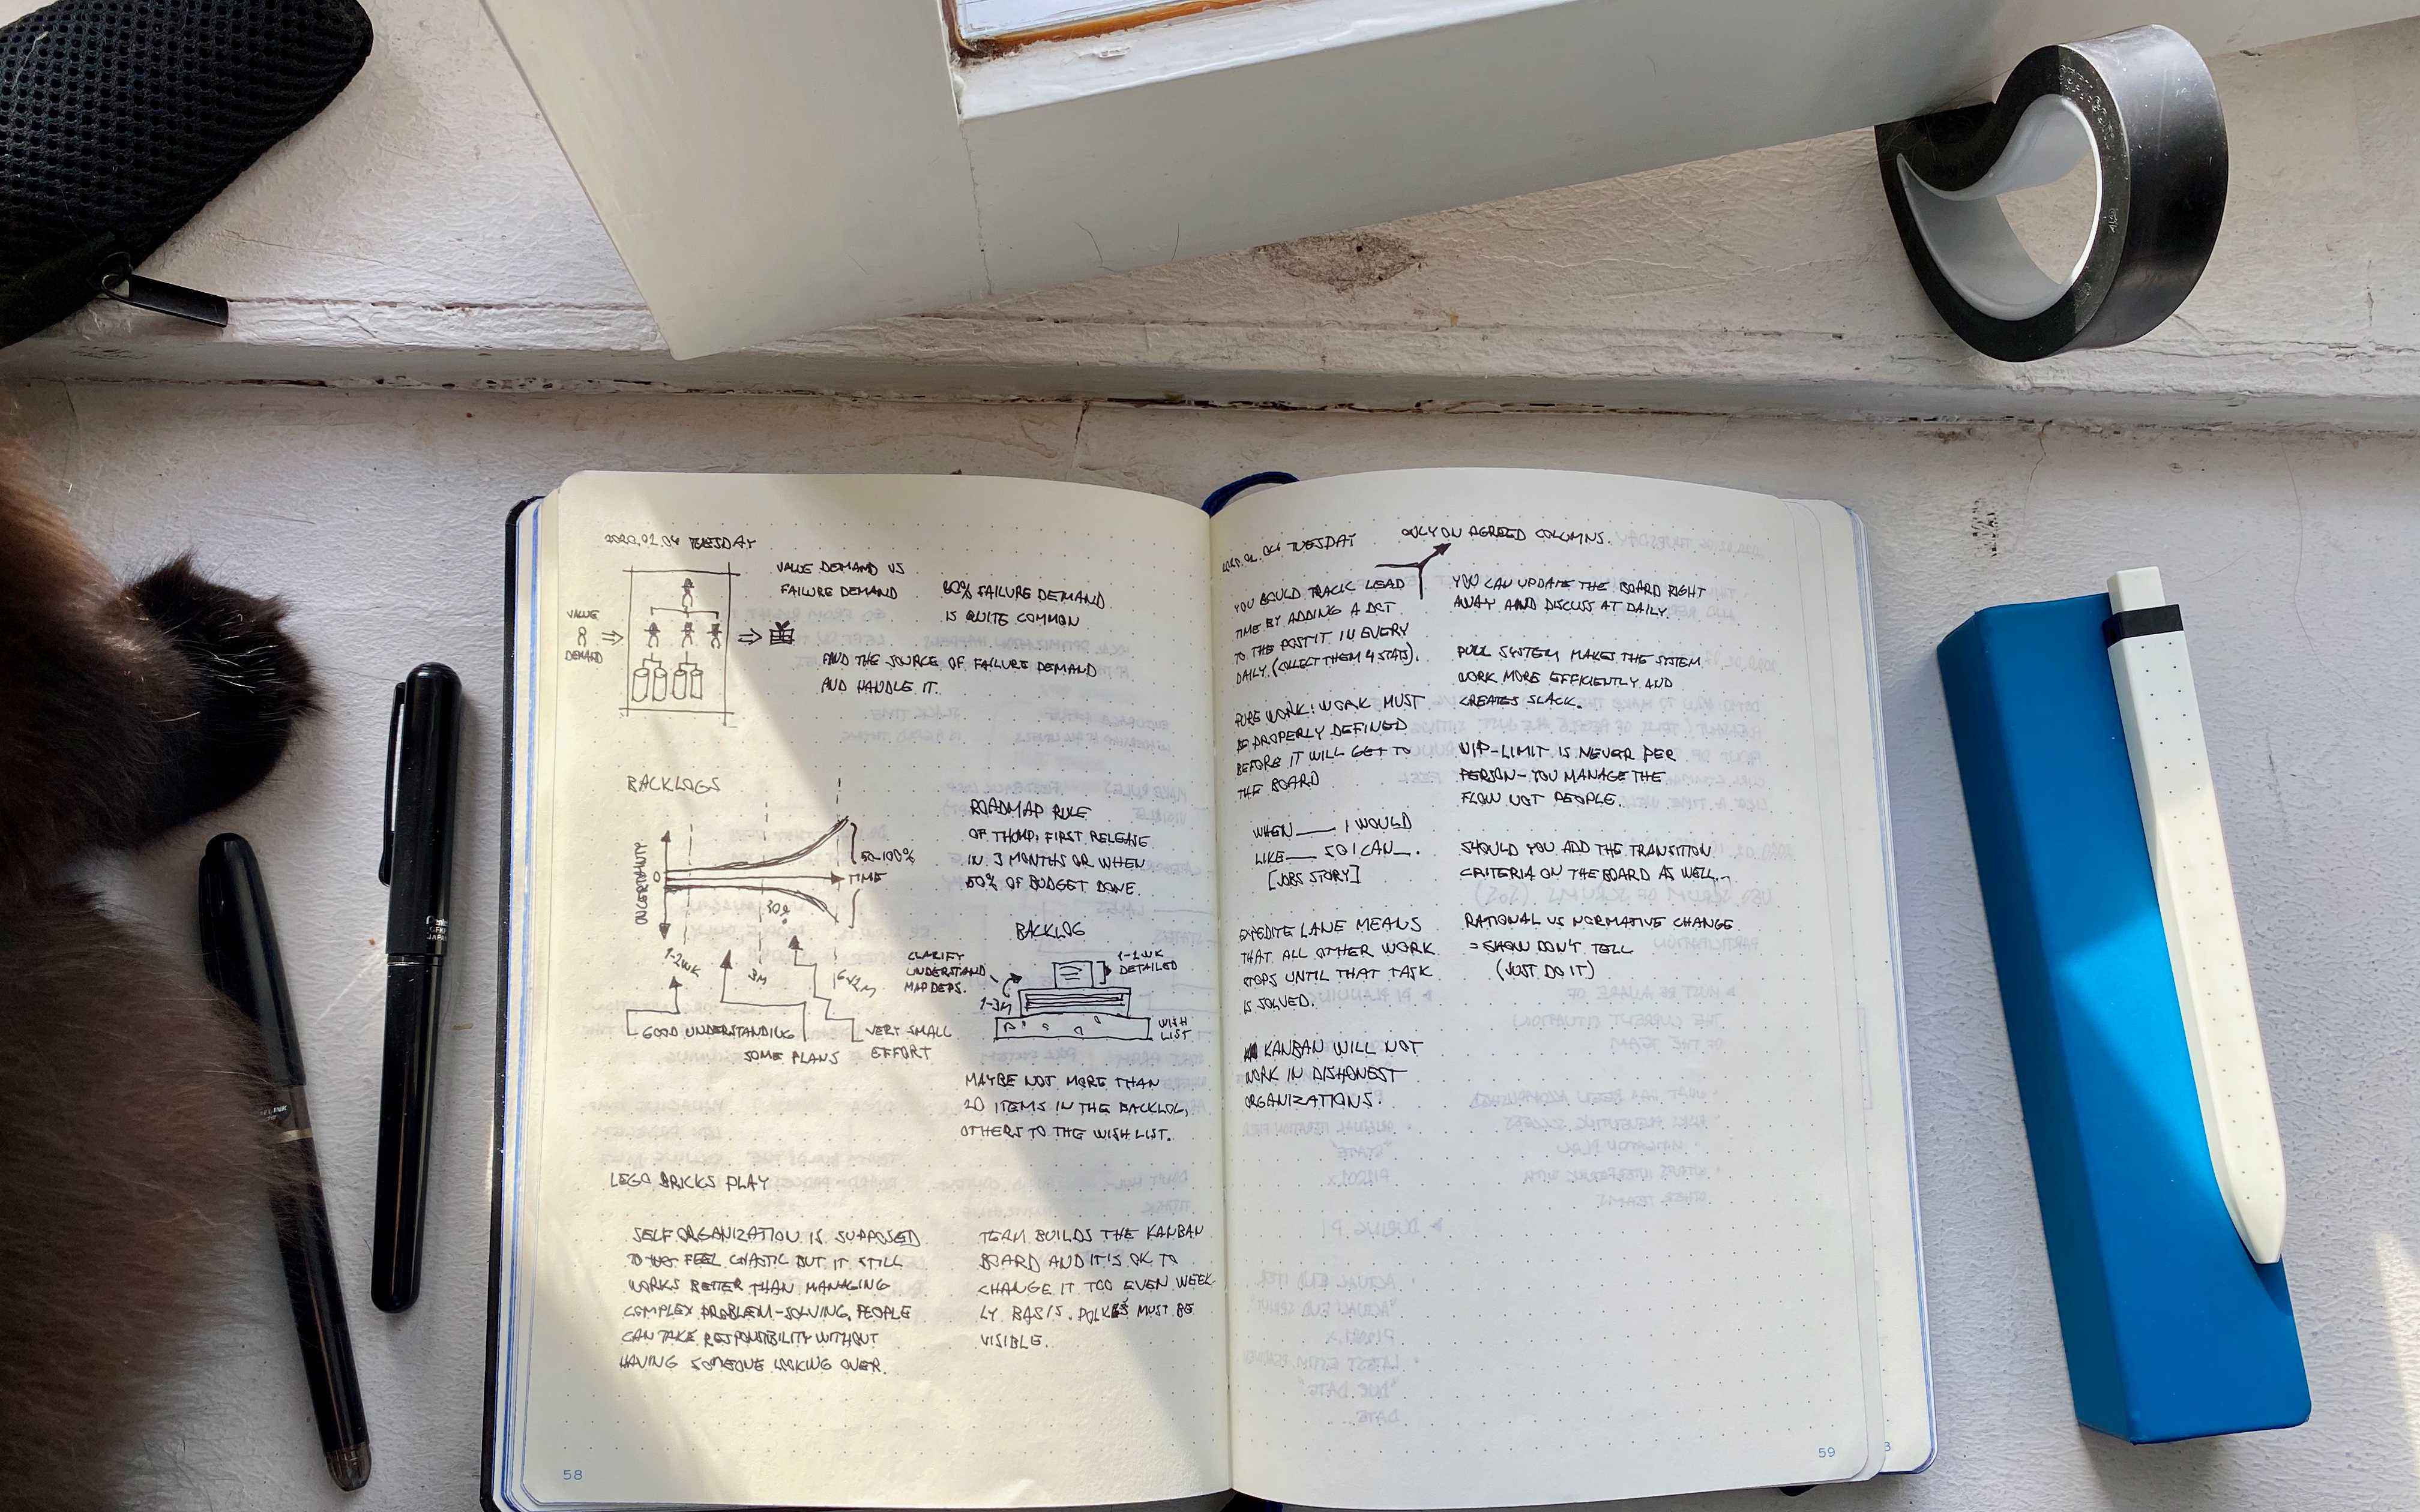 2020.02.04 TUESDAY
VALUE DEMAND VS
FAILURE DEMAND
80% FAILURE DEMAND
IS QUITE COMMON
VALUE
DEMAND
FIND THE SOURCE OF FAILURE DEMAND
AND HANDLE IT.
BACKLOGS
UNCERTAINITY
0
50-100%
TIME
30%
1-2WK
3M
GOOD UNDERSTANDING
SOME PLANS
VERY SMALL
EFFORT
ROADMAP RULE
OF THUMB: FIRST RELEASE
IN 3 MONTHS OR WHEN
50% OF BUDGET DONE.
BACKLOG
CLARIFY
UNDERSTAND
MAP DEPS.
1-2WK
DETAILED
1-3M
WISH
LIST
MAYBE NOT MORE THAN
20 ITEMS IN THE BACKLOG,
OTHERS TO THE WISH LIST.
LEGO BRICKS PLAY
SELF ORGANIZATION IS SUPPOSED
TO FEEL CHAOTIC BUT IT STILL
WORKS BETTER THAN MANAGING
COMPLEX PROBLEM-SOLVING. PEOPLE
CAN TAKE RESPONSIBILITY WITHOUT
HAVING SOMEONE LOOKING OVER.
TEAM BUILDS THE KANBAN
BOARD AND IT'S OK TO
CHANGE IT TOO EVEN WEEK-
LY BASIS. POLICIES MUST BE
VISIBLE.
58
2020.02.04 TUESDAY
ONLY ON AGREED COLUMNS.
YOU COULD TRACK LEAD
TIME BY ADDING A DOT
TO THE POSTIT IN EVERY
DAILY. (COLLECT THEM 4 STATS).
PURE WORK: WORK MUST
BE PROPERLY DEFINED
BEFORE IT WILL GET TO
THE BOARD
WHEN___ I WOULD
LIKE___ SO I CAN__.
[JOBS STORY]
EXPEDITE LANE MEANS
THAT ALL OTHER WORK
STOPS UNTIL THAT TASK
IS SOLVED.
KANBAN WILL NOT
WORK IN DISHONEST
ORGANIZATIONS.
YOU CAN UPDATE THE BOARD RIGHT
AWAY AND DISCUSS AT DAILY.
PULL SYSTEM MAKES THE SYSTEM
WORK MORE EFFICIENTLY AND
CREATES SLACK.
WIP-LIMIT IS NEVER PER
PERSON - YOU MANAGE THE
FLOW NOT PEOPLE.
SHOULD YOU ADD THE TRANSITION
CRITERIA ON THE BOARD AS WELL...
RATIONAL VS NORMATIVE CHANGE
= SHOW DON'T TELL
(JUST DO IT)
59